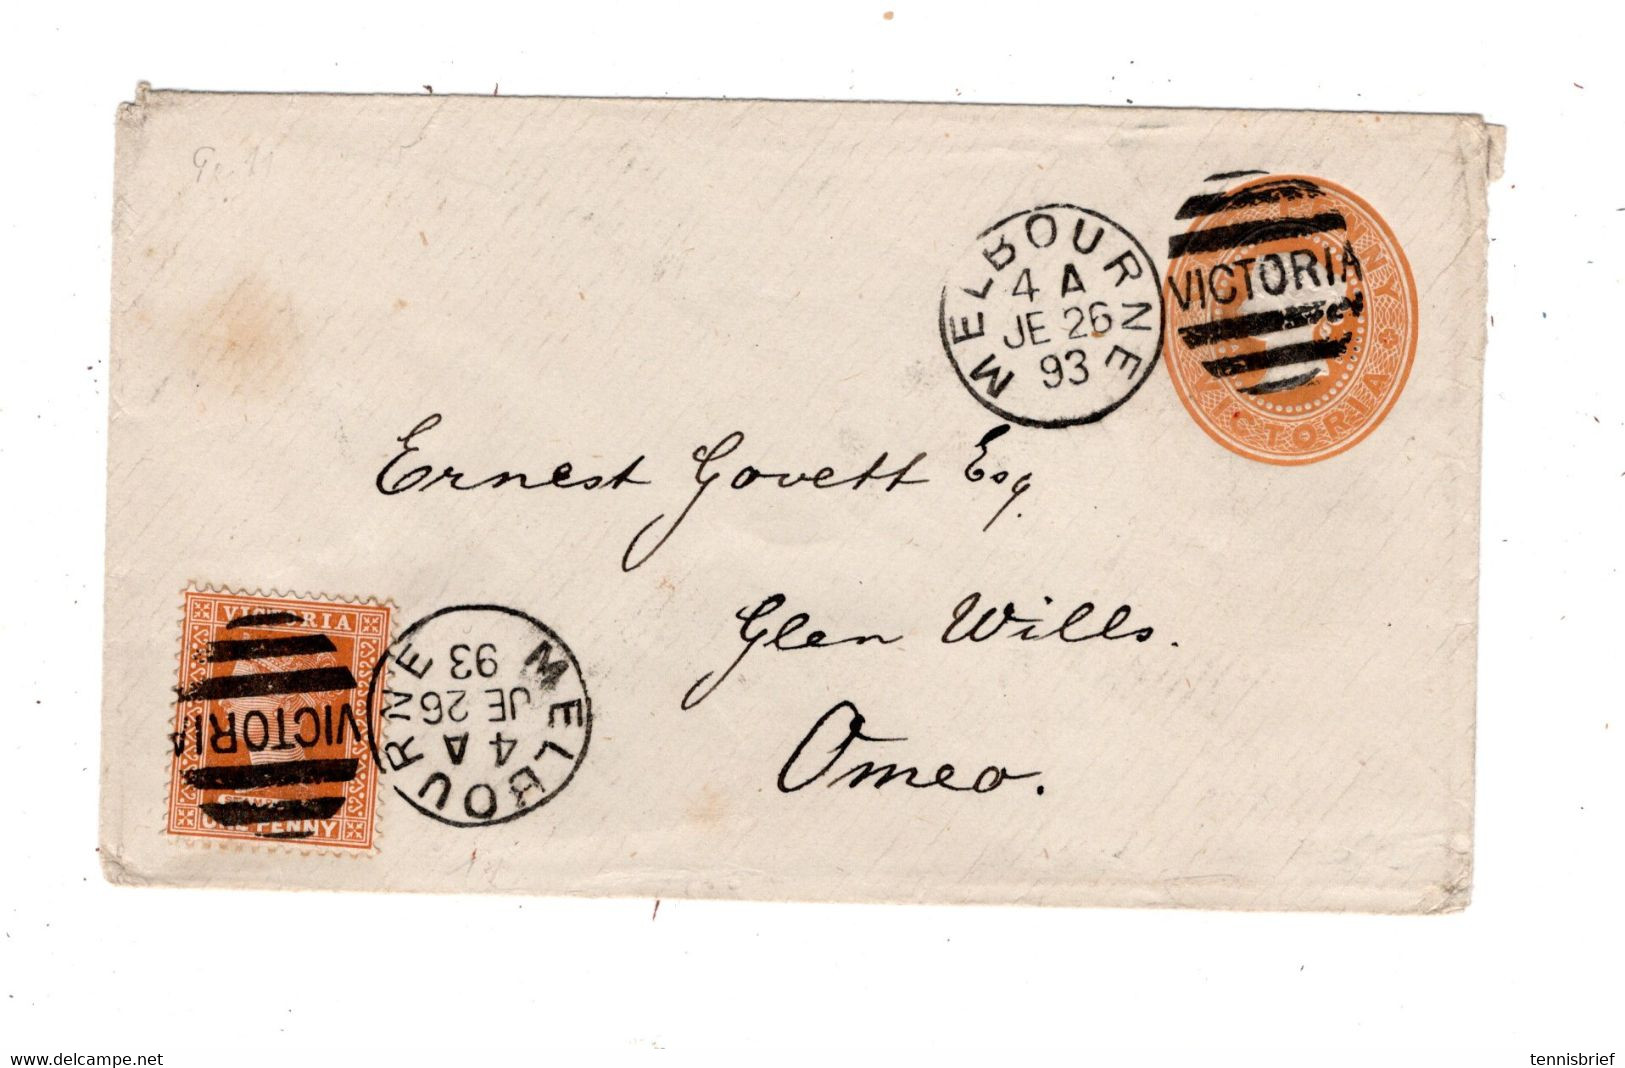 Ge 11
MELBOURNE
4 A
JE 26
93
VICTORIA
PENNY
VICTORIA
Ernest Govett Esq.
Glen Wills.
Omeo.
VICTORIA
ONE PENNY
VICTORIA
MELBOURNE
4 A
JE 26
93
www.delcampe.net
tennisbrief